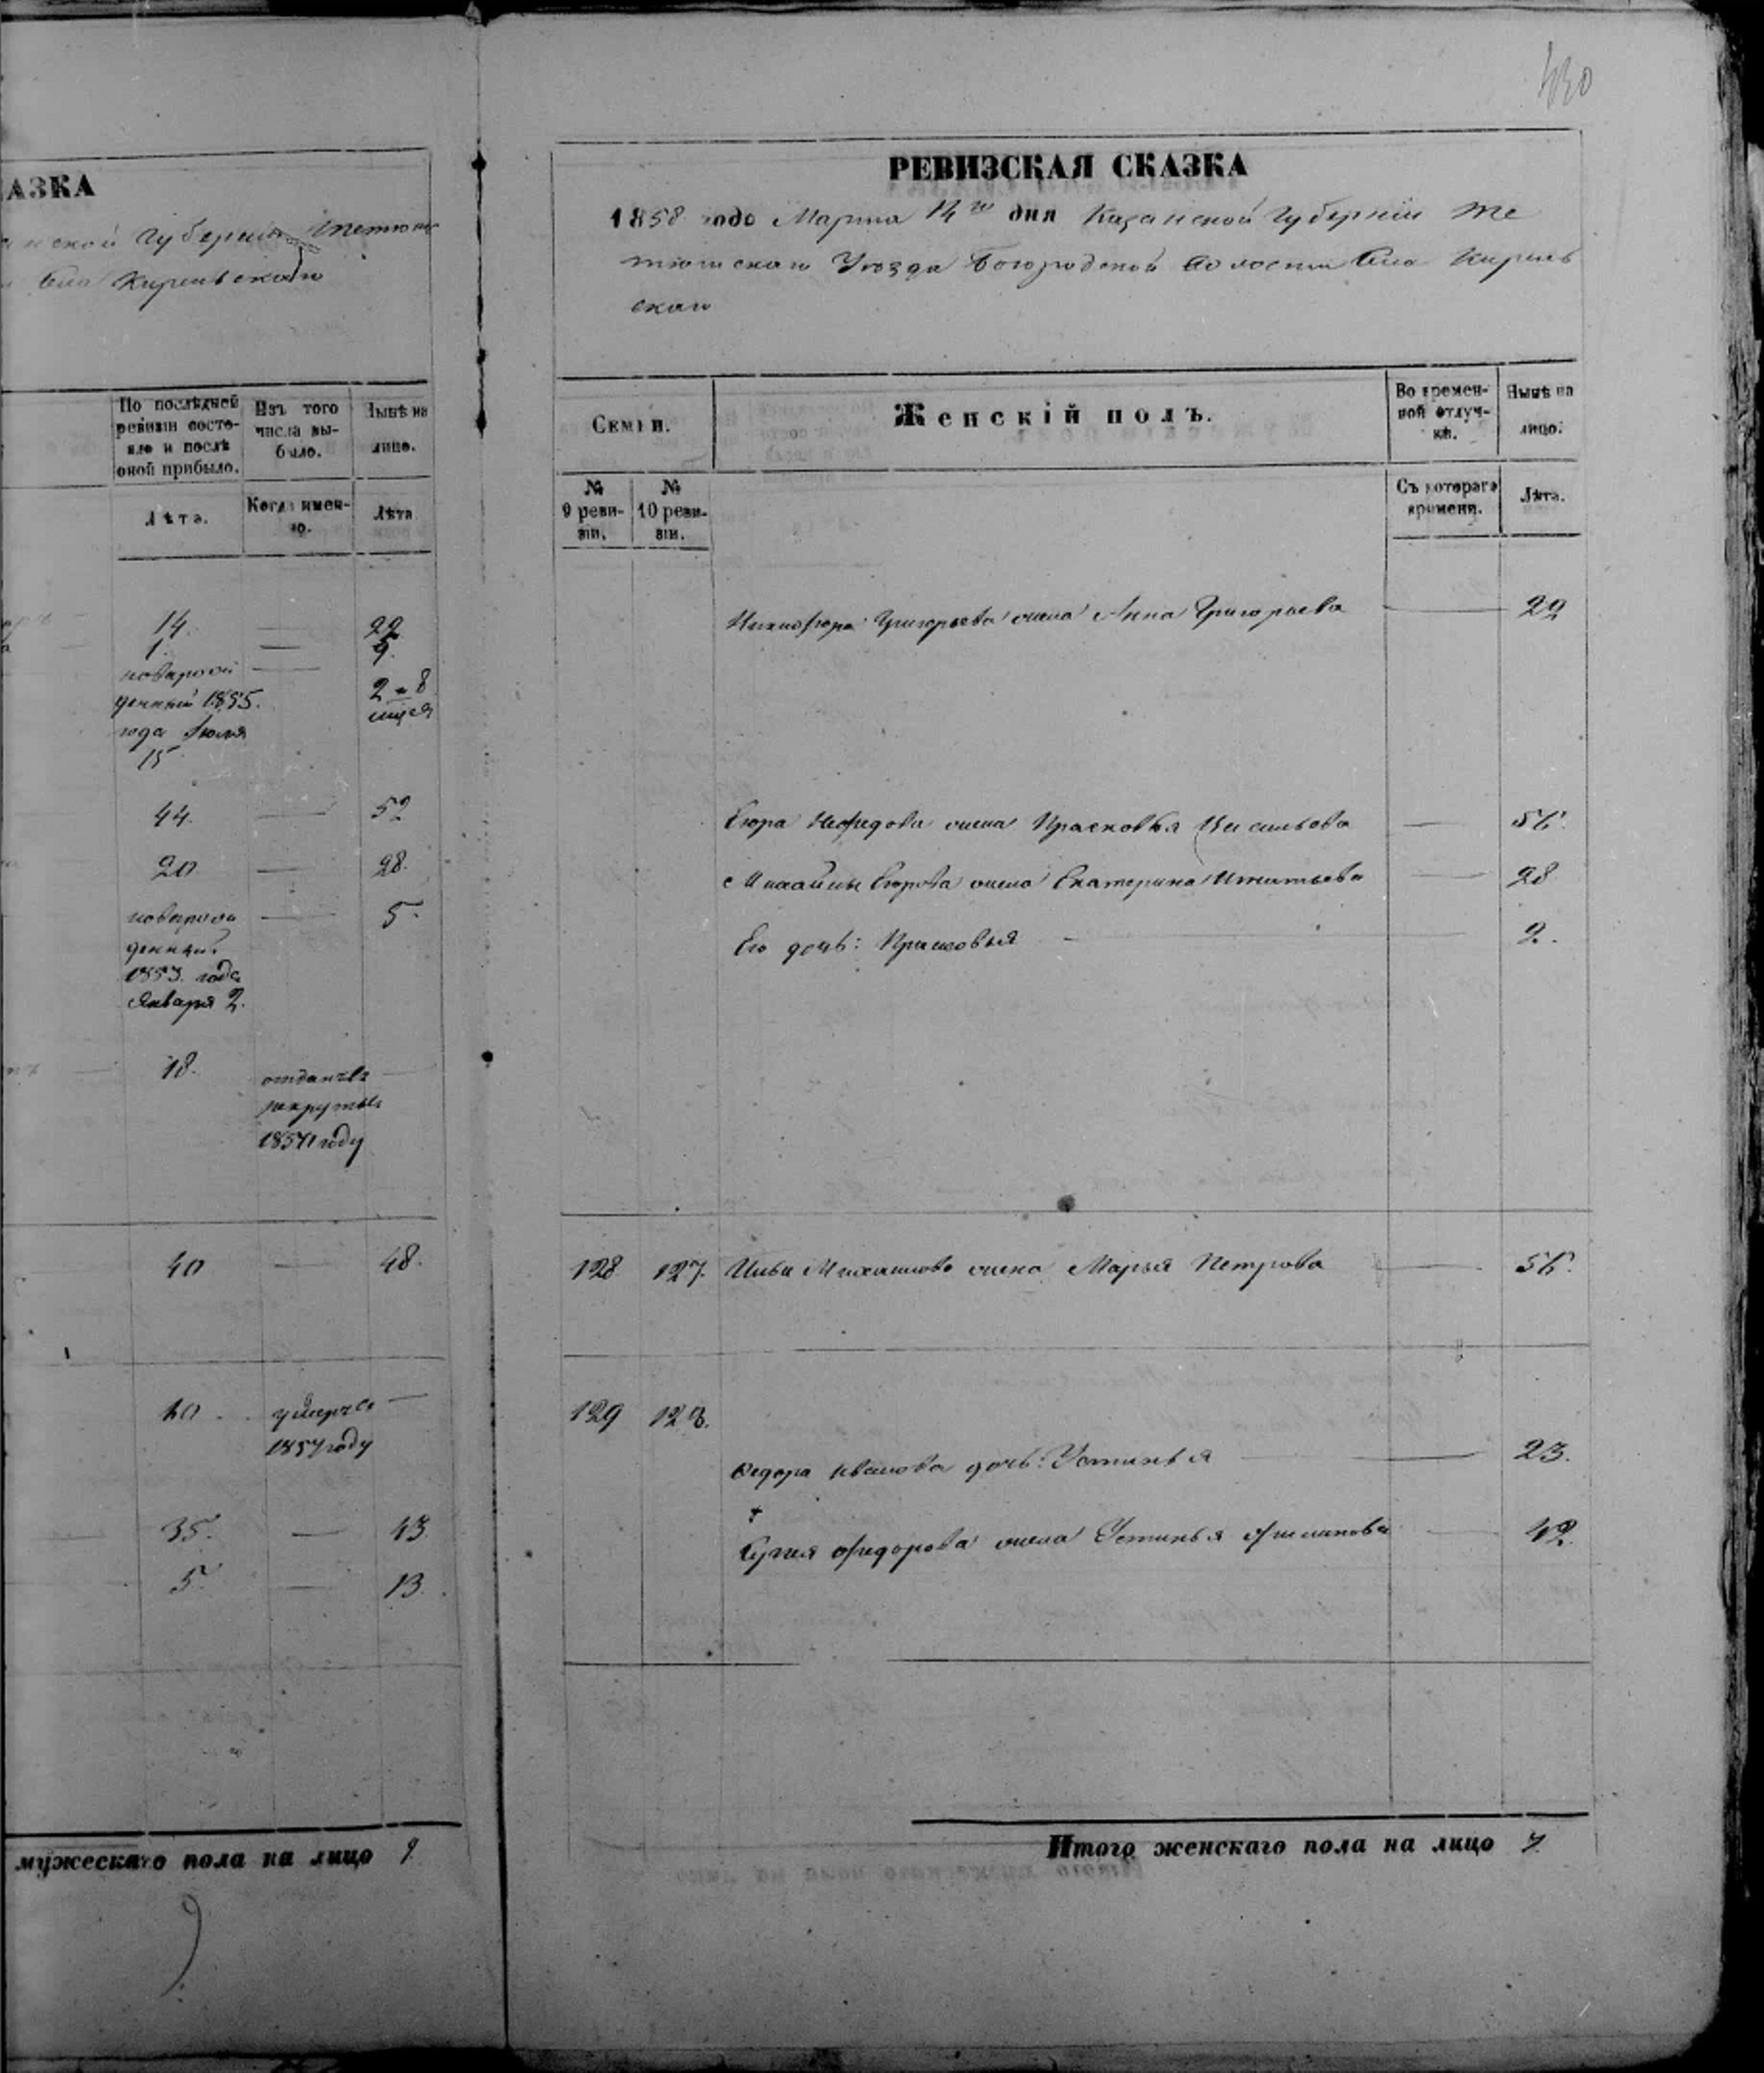 430
АЗКА
Губерніи Тетюш
Села Кирельскаго
По послѣдней
ревизіи состо-
яло и послѣ
оной прибыло.
Изъ того
числа вы-
было.
Нынѣ на
лицо.
Лѣта.
Когда имен-
но.
Лѣта
14. — 22
1. — 9.
новорож
денный 1855.
года Іюля
15
2 и 8
мѣся
44. — 52
20 — 28.
новорож — 5.
денный
1853. года
Января 2.
18. отданъ въ —
рекруты въ
году
40 — 48.
40. умеръ въ —
1857 году
35. — 43
5. — 13.
мужескаго пола на лицо 9
РЕВИЗСКАЯ СКАЗКА
1858 года Марта 14го дня Казанской Губерніи Те
тюшскаго Уѣзда Богородской Волости Села Кирель
скаго
Семьи.
Женскій полъ.
Во времен-
ной отлуч-
кѣ.
Нынѣ на
лицо.
№
9 реви-
зіи.
№
10 реви-
зіи.
Съ котораго
времени.
Лѣта.
Никифора Григорьева жена Анна Григорьева — 29
Егора Нефедова жена Прасковья Васильева — 56.
Михайлы Егорова жена Екатерина Игнатьева — 28
Его дочь: Прасковья — 2.
128 127. Михайлова жена Марья Петрова — 56.
129 128.
Федора Иванова дочь: Устинья — 23.
Сергея Федорова жена Устинья Филипова — 42.
Итого женскаго пола на лицо 7